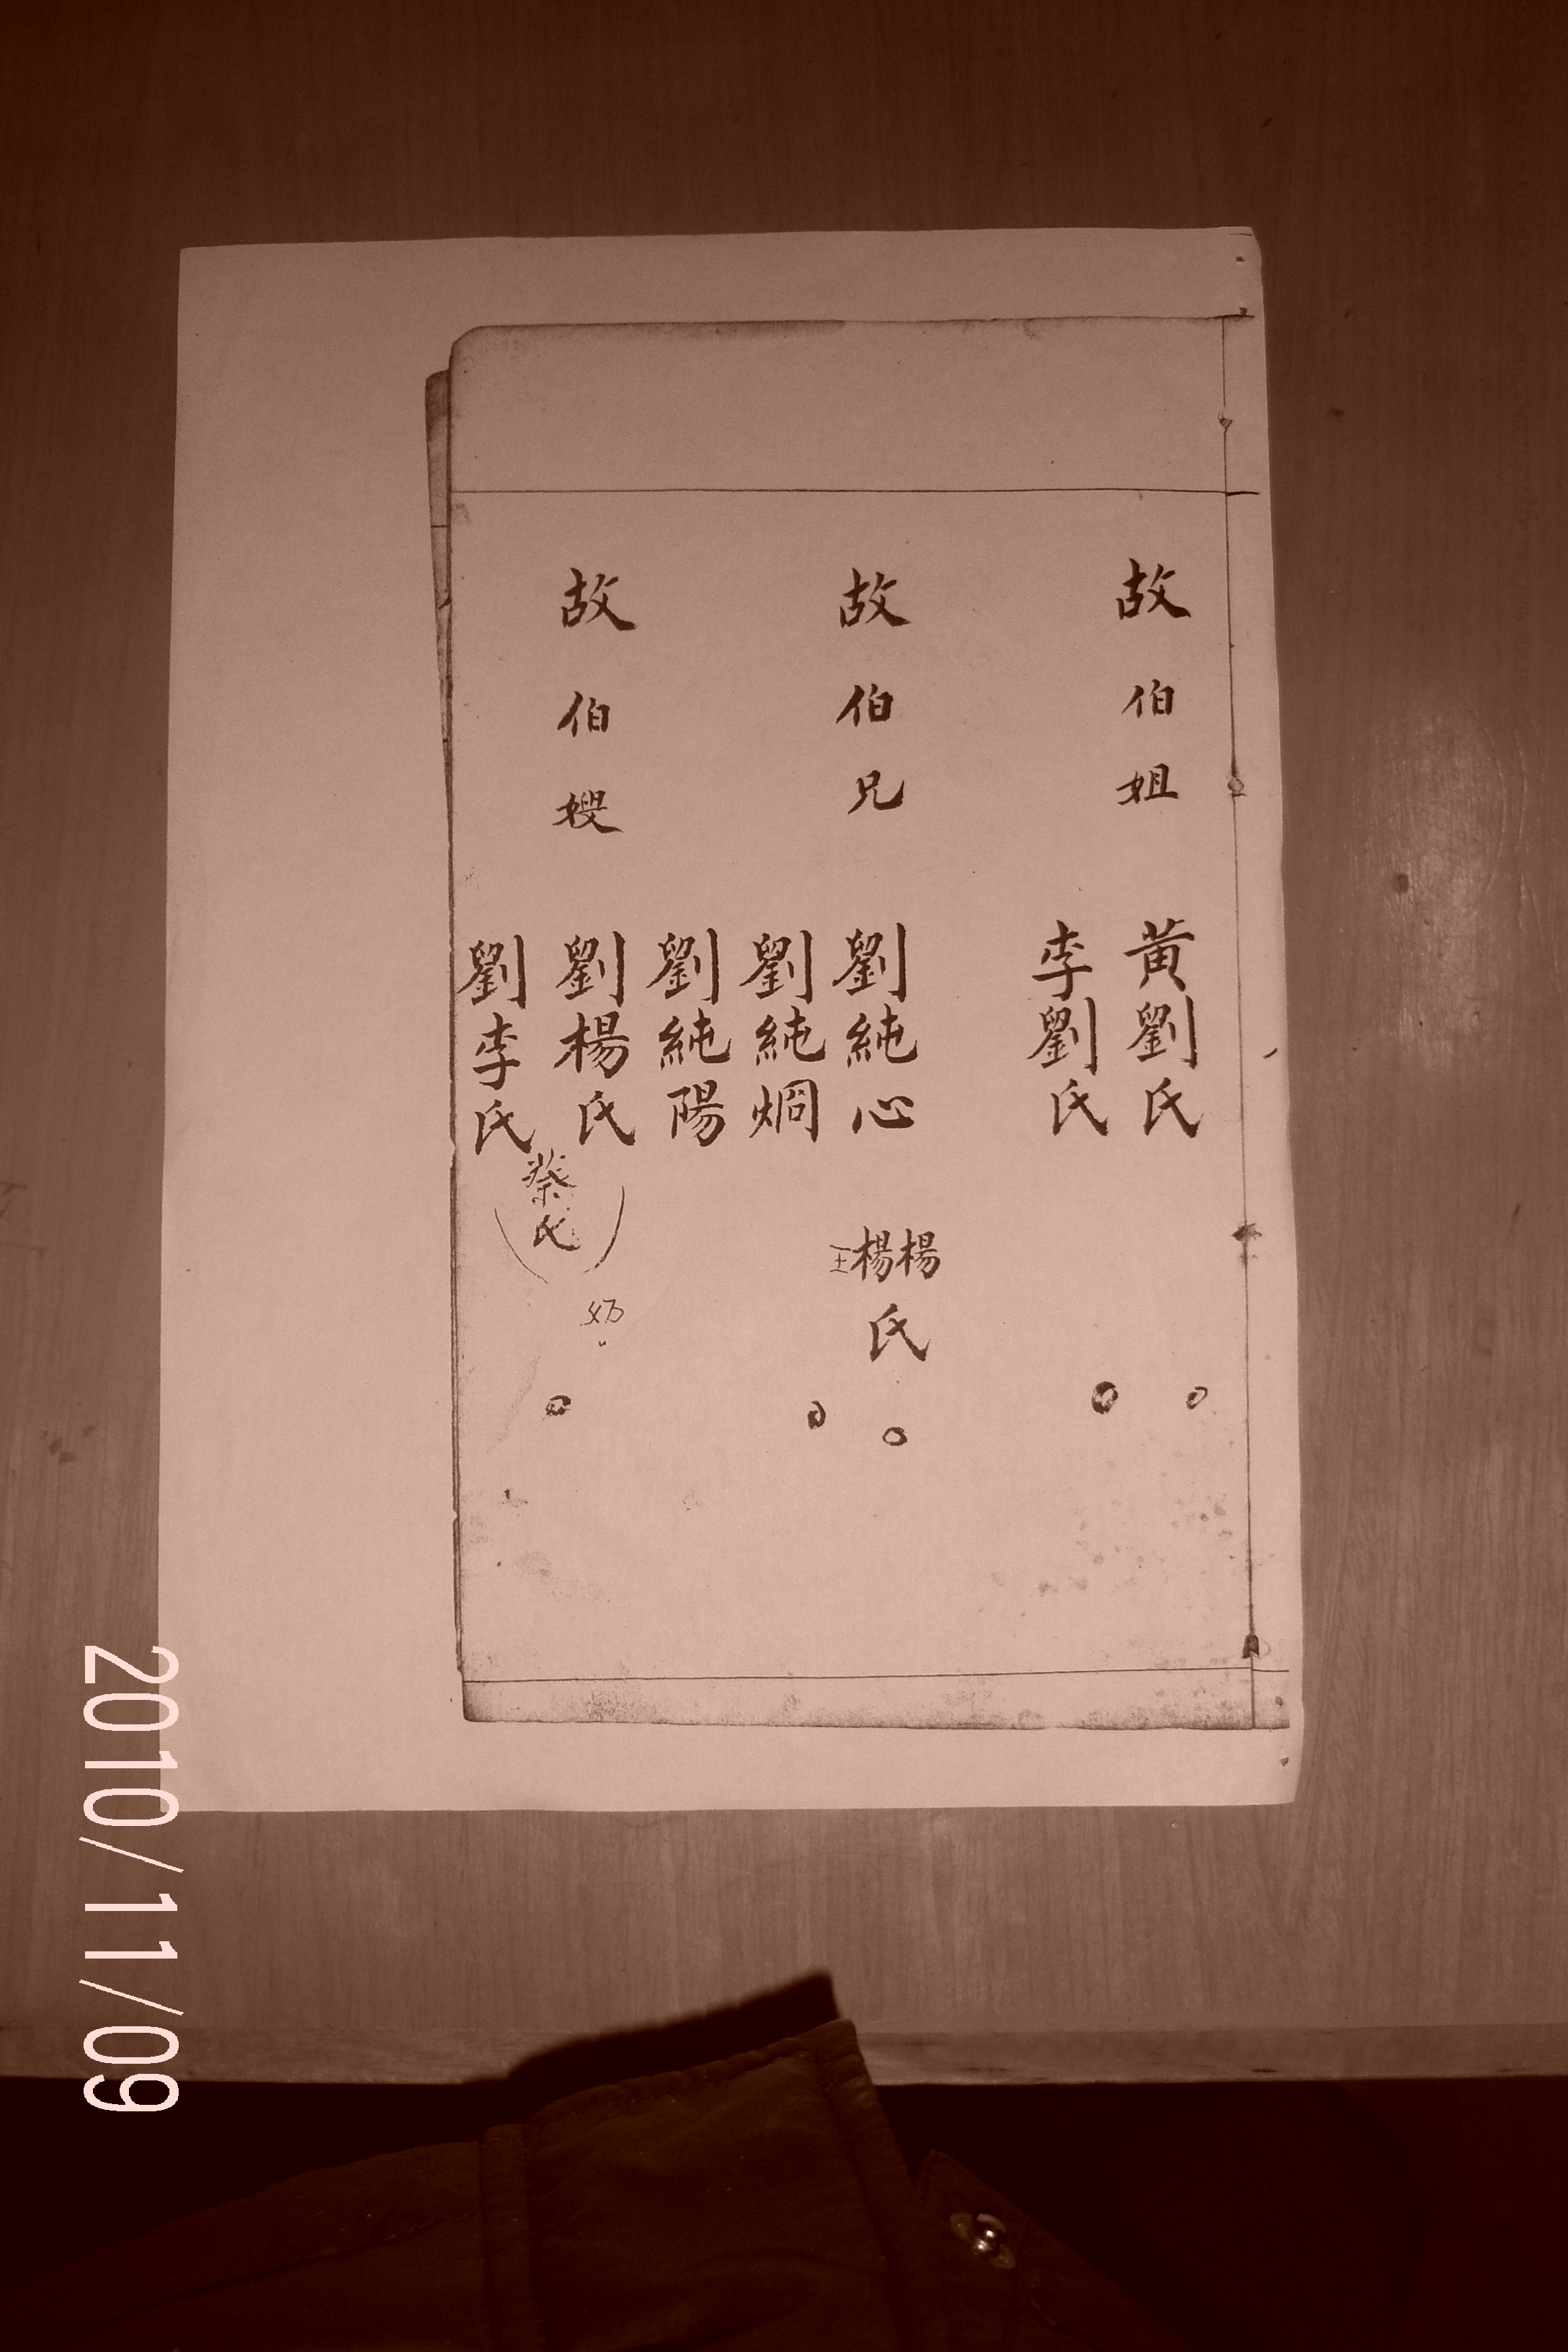 故伯姐
黃劉氏
李劉氏
故伯兄
劉純心
楊楊王氏
劉純焵
劉純陽
故伯嫂
劉楊氏
劉李氏
蔡氏
2010/11/09